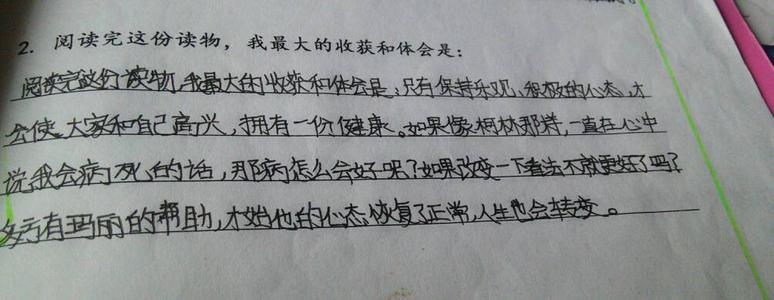 2. 阅读完这份读物，我最大的收获和体会是：
阅读完这份读物，我最大的收获和体会是：只有保持乐观、积极的心态，才
会使大家和自己高兴，拥有一份健康。如果像柯林那样，一直在心中
说我会病死的话，那病怎么会好呢？如果改变一下看法不就更好了吗？
多亏有玛丽的帮助，才始他的心态恢复了正常，人生也会转变。